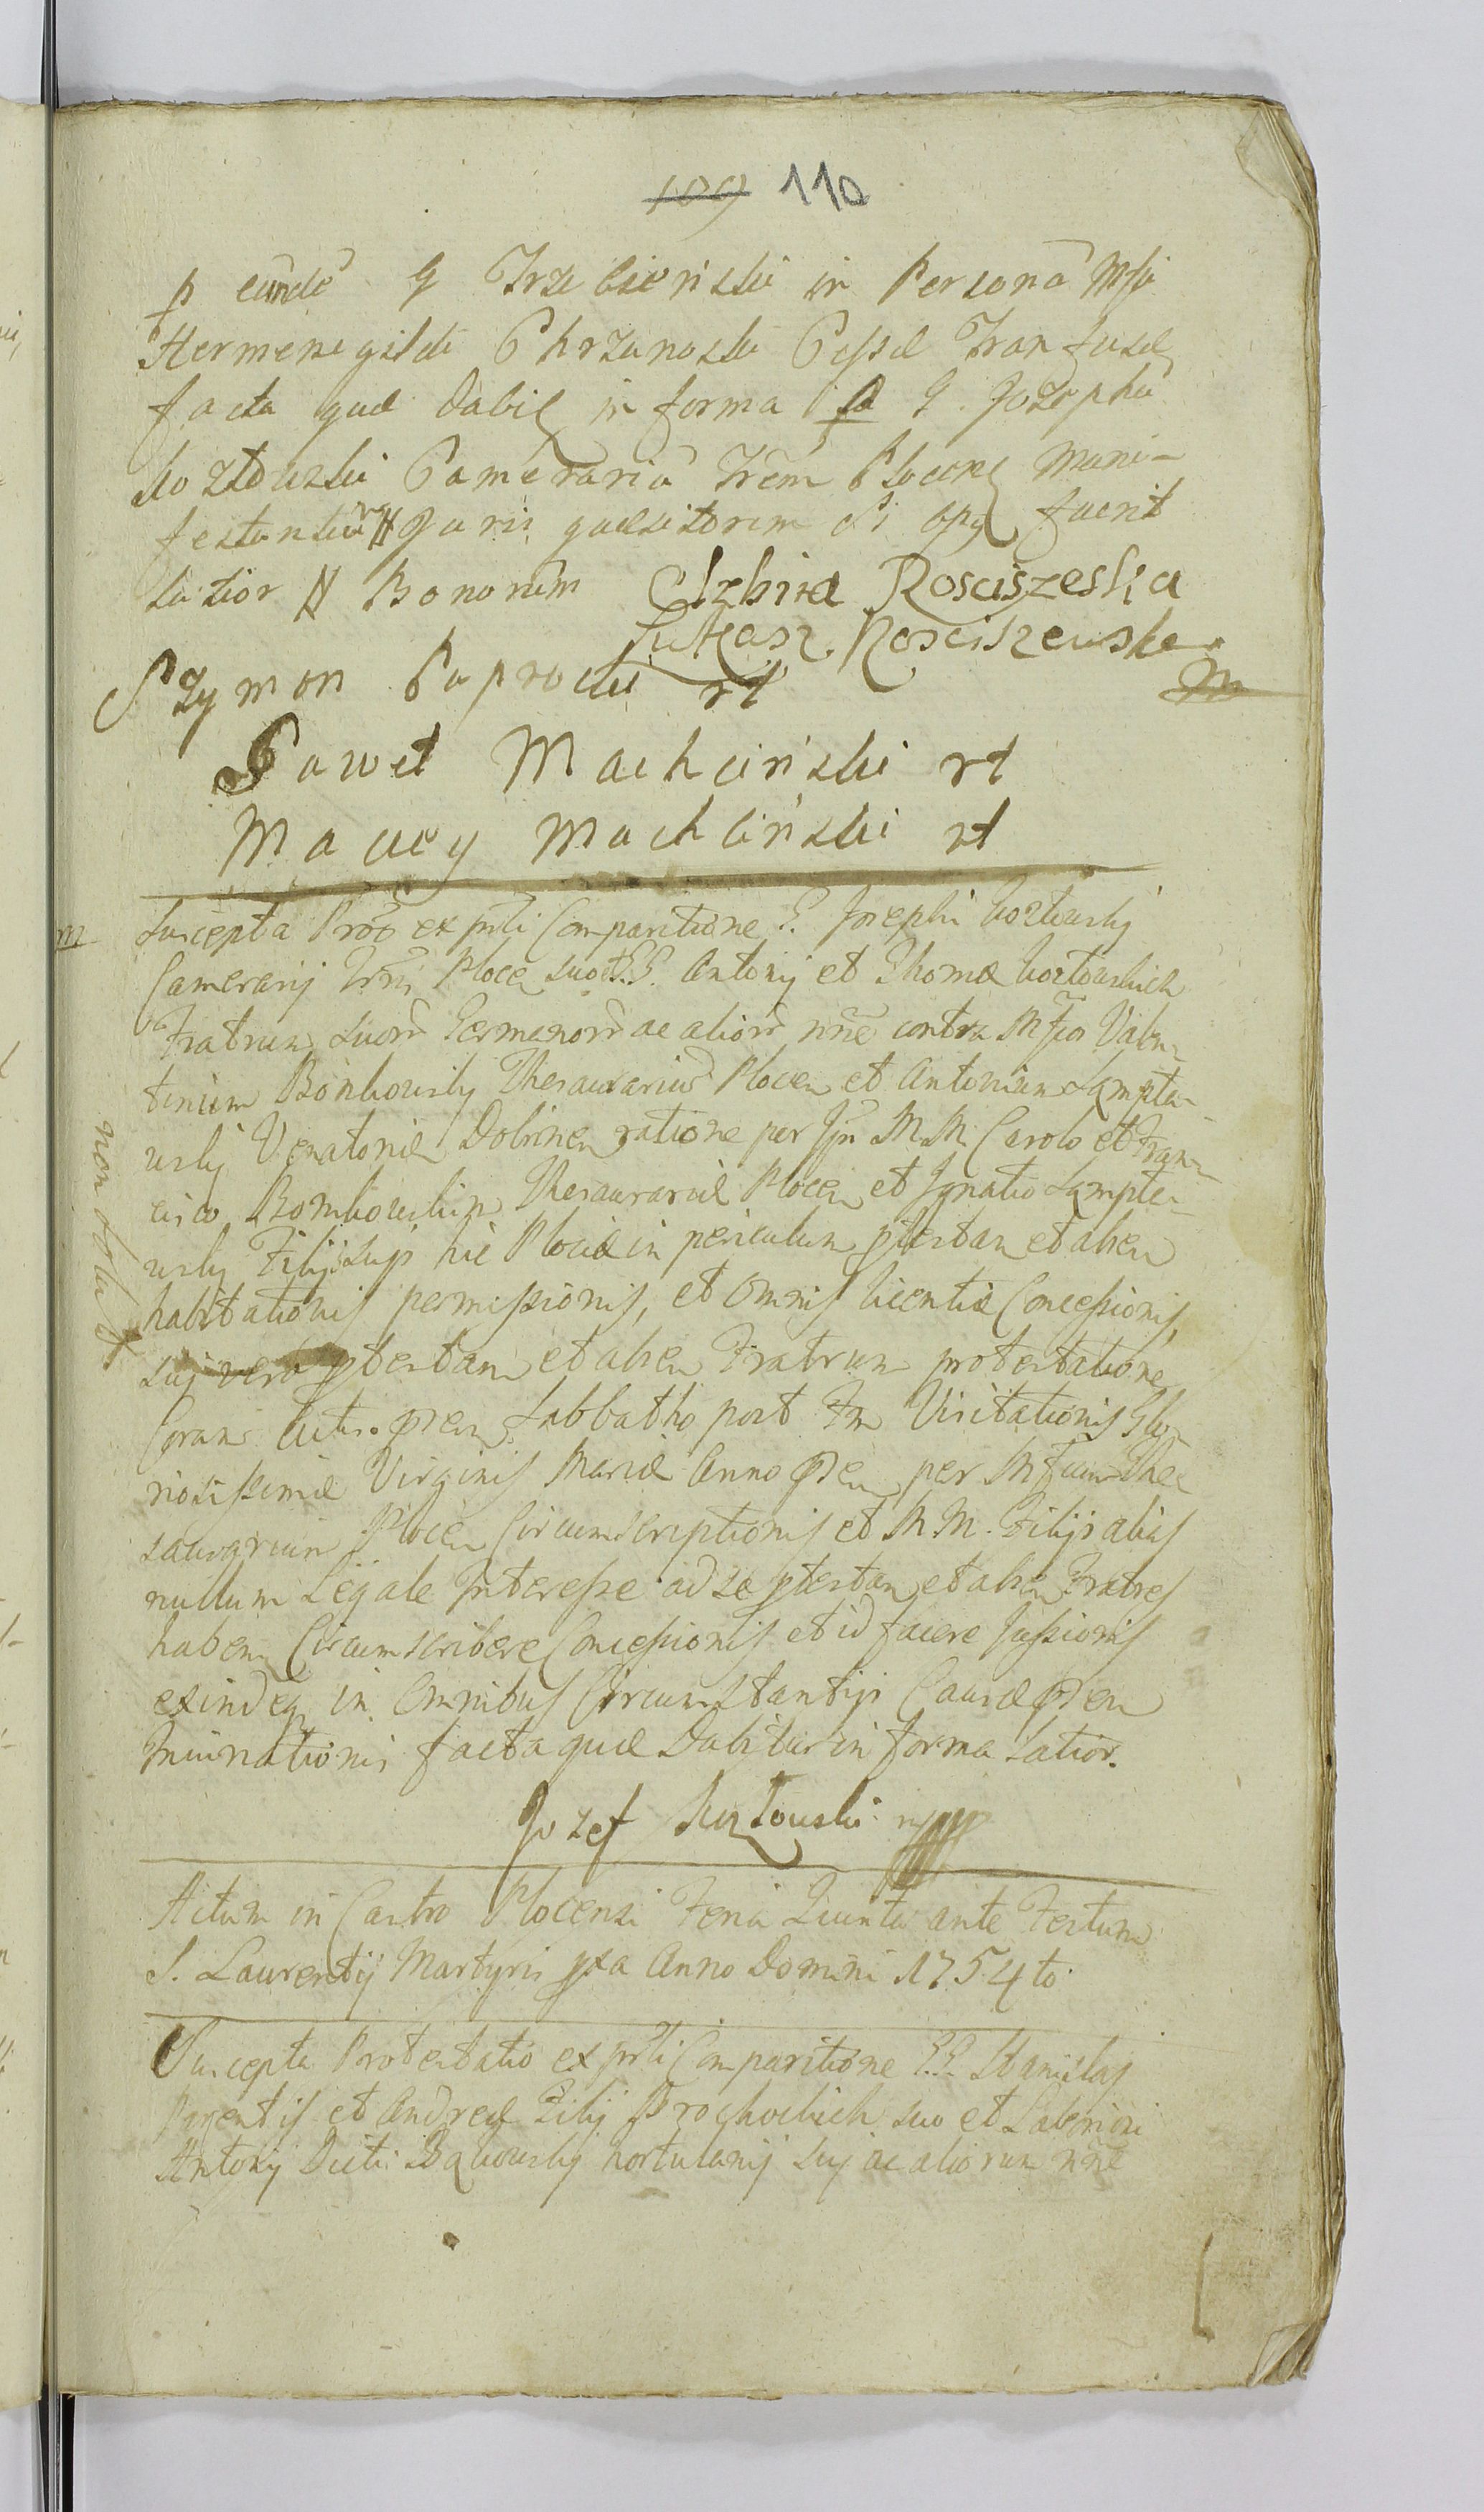 109 110
p eundē G Trzebienski in Personā Mfci
Hermenegildi Chrzanoski Cessae Transfusae
facta quae dabit in forma G. Jozephū
Kozłouski Camerariū Trēm Plocen Mani-
festantiū # Juris quaesitorem si opq fuerit
latior # Bonorum Elzbita Rosciszeska
Łukasz Rosciszewski
Szymon Paprocki rt m
Paweł Machcinski rt
Maciey Machcinski rt
m Suscepta Prot ex prti Comparitione G. Josephi Kozłouskij
Camerarij Trrni Plocen suo et GG. Antonij et Thomae Kozłouskich
Fratrum suorū Germanorū ac aliorū nne contra Mfcos Valen-
tinum Bonkouskij Thesaurariū Plocen et Antonium Lempic-
uskij Venatorem Dobrinen ratione per Ijn M.M. Carolo et Fran-
cisco Bonkouskim Thesaurariae Plocen et Ignatio Lempic-
uskij Filijs suis hic Plociae in periculum ptestan et alien
habitationis permissionis, et omnis licentiae Concessionis,
suj vero ptestan et alien Fratrum protestatione
Coram Actis pren Sabbatho post Fm Visitationis Glo-
riosissimae Virginis Mariae Anno pren per Mfcum The-
saurarium Plocen Circumscriptionis et M.M. Filijs alias
nullum Legale Interesse ad se ptestan et alien Fratres
haben Circumscribere Concessionis et id facere Jussionis
exindeq in Omnibus Circumstantijs Causae pren
Ruinationis facta quae Dabitur in forma latior.
non solut
Jozef Kozłouski mpp
Actum in Castro Plocensi Feria Quinta ante Festum
S. Laurentij Martyris pxa Anno Domini 1754to
Suscepta Protestatio ex prti Comparitione G.G. Stanislaj
Parentis et Andreae Filij Brochockich suo et Laboriosi
Antonij Dicti Bakouskij hortulanij suj ac aliorum nne